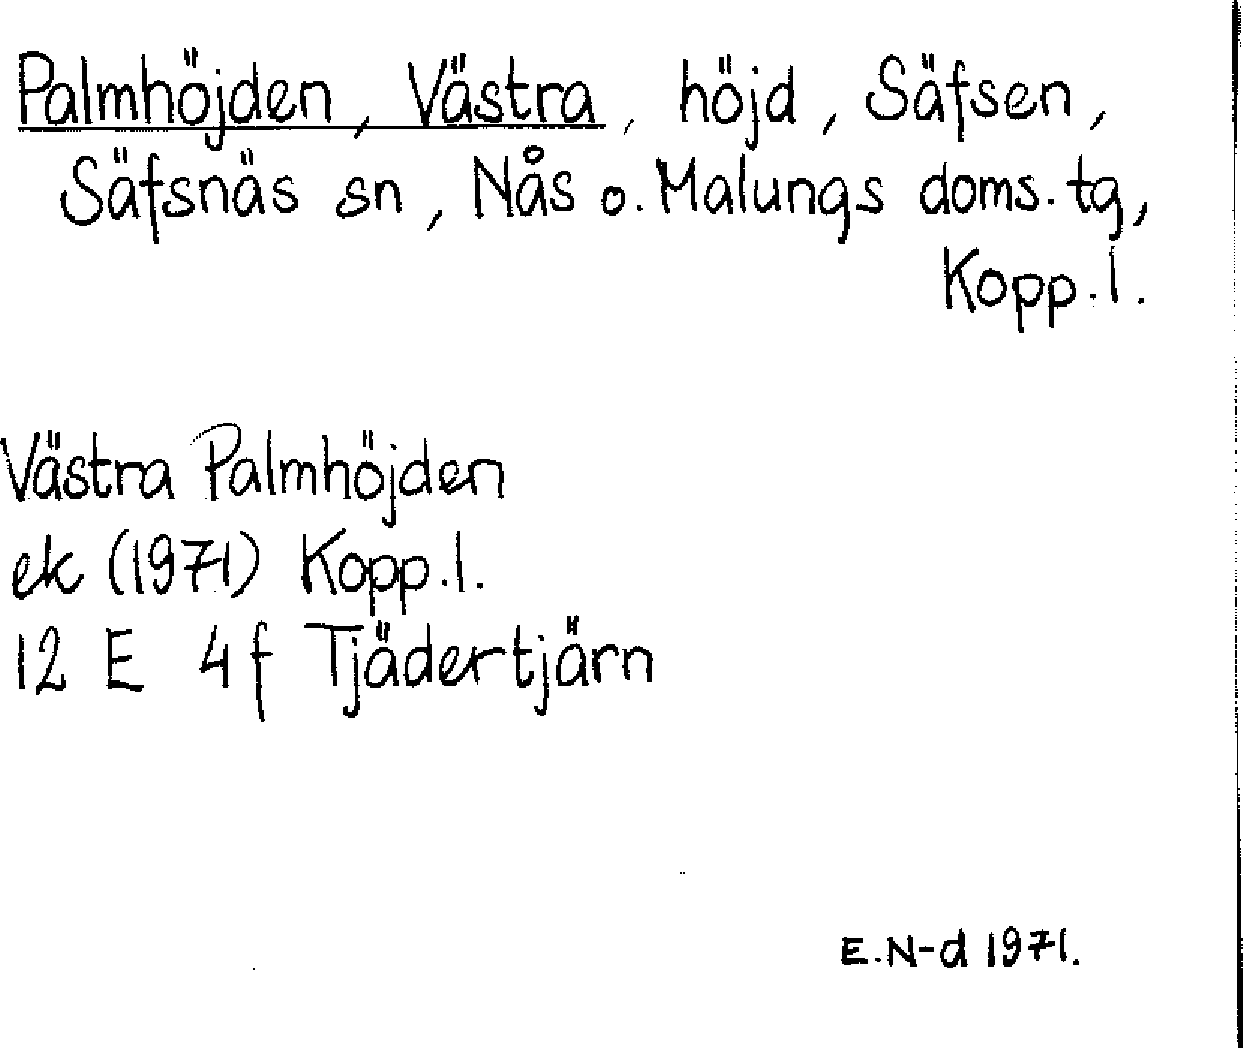 Palmhöjden, Västra, höjd, Säfsen,
Säfsnäs sn, Nås o. Malungs doms. tg,
Kopp. l.
Västra Palmhöjden
ek (1971) Kopp. l.
12 E 4f Tjädertjärn
E. N-d 1971.